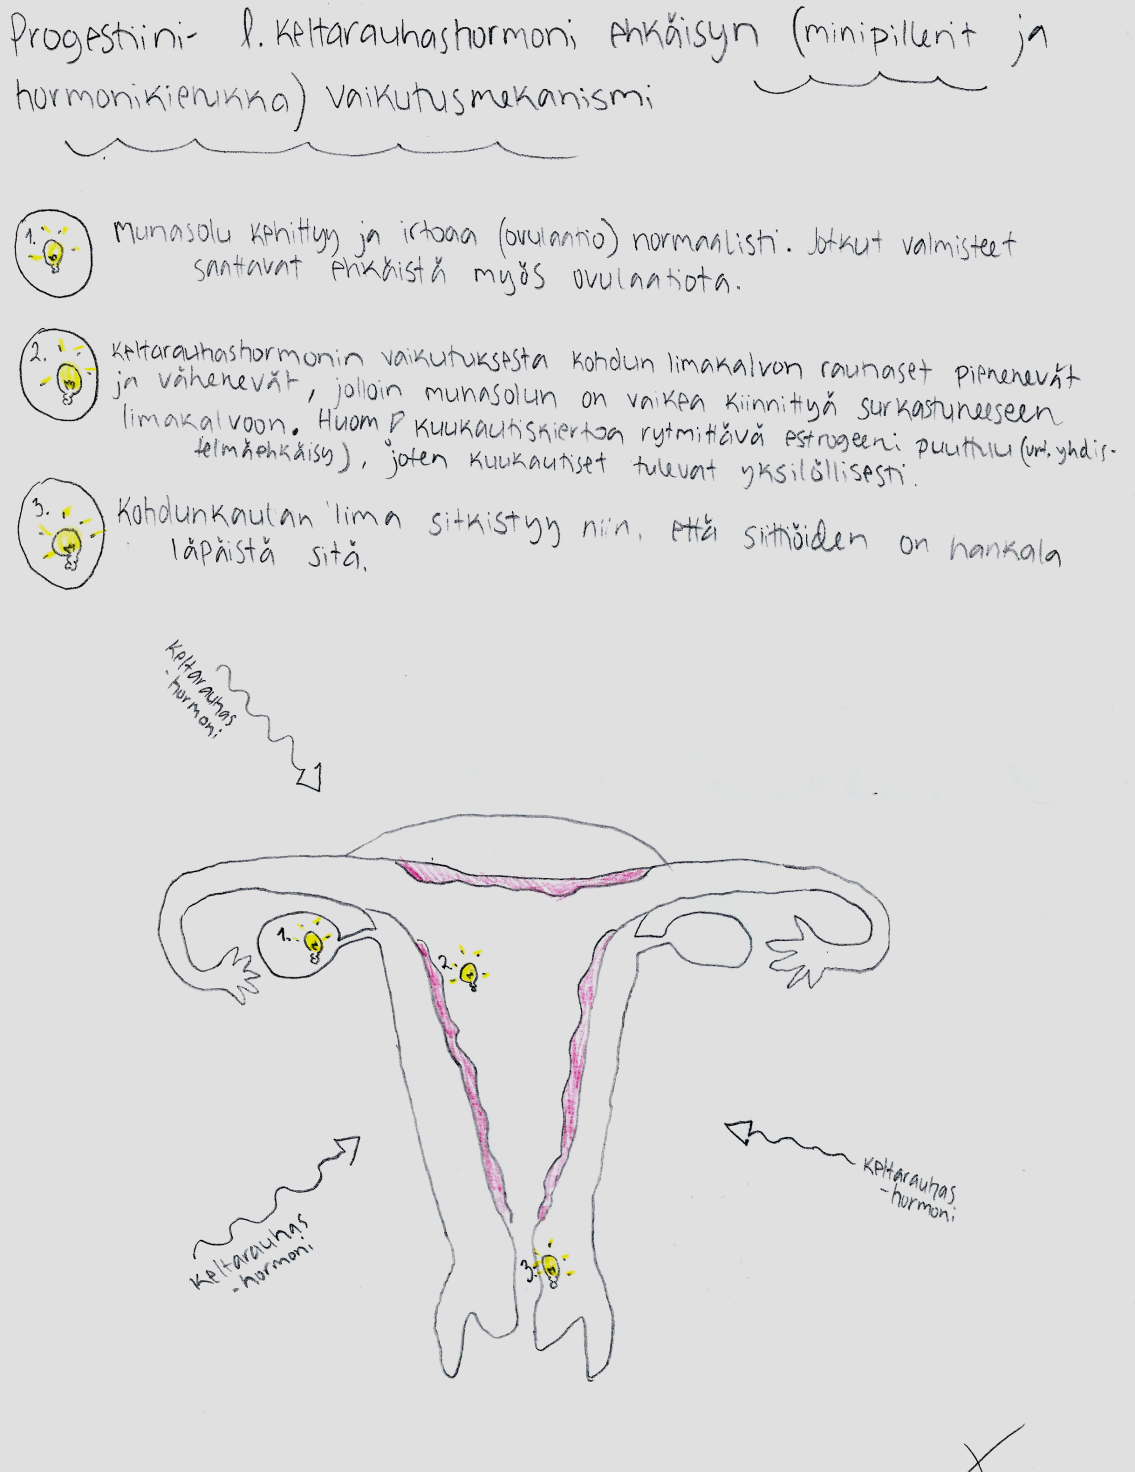 Progestiini- l. keltarauhashormoni ehkäisyn (minipillerit ja
hormonikierukka) vaikutusmekanismi
1.
Munasolu kehittyy ja irtoaa (ovulaatio) normaalisti. Jotkut valmisteet
saattavat ehkäistä myös ovulaatiota.
2.
Keltarauhashormonin vaikutuksesta kohdun limakalvon rauhaset pienenevät
ja vähenevät, jolloin munasolun on vaikea kiinnittyä surkastuneeseen
limakalvoon. Huom! Kuukautiskiertoa rytmittävä estrogeeni puuttuu (vrt. yhdis-
telmäehkäisy), joten kuukautiset tulevat yksilöllisesti.
3.
Kohdunkaulan lima sitkistyy niin, että siittiöiden on hankala
läpäistä sitä.
Keltarauhas
-hormoni
1.
2.
Keltarauhas
-hormoni
Keltarauhas
-hormoni
3.